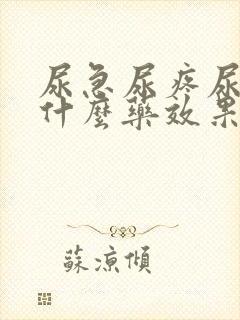 尿急尿疼尿
什麼藥效果
蘇涼傾